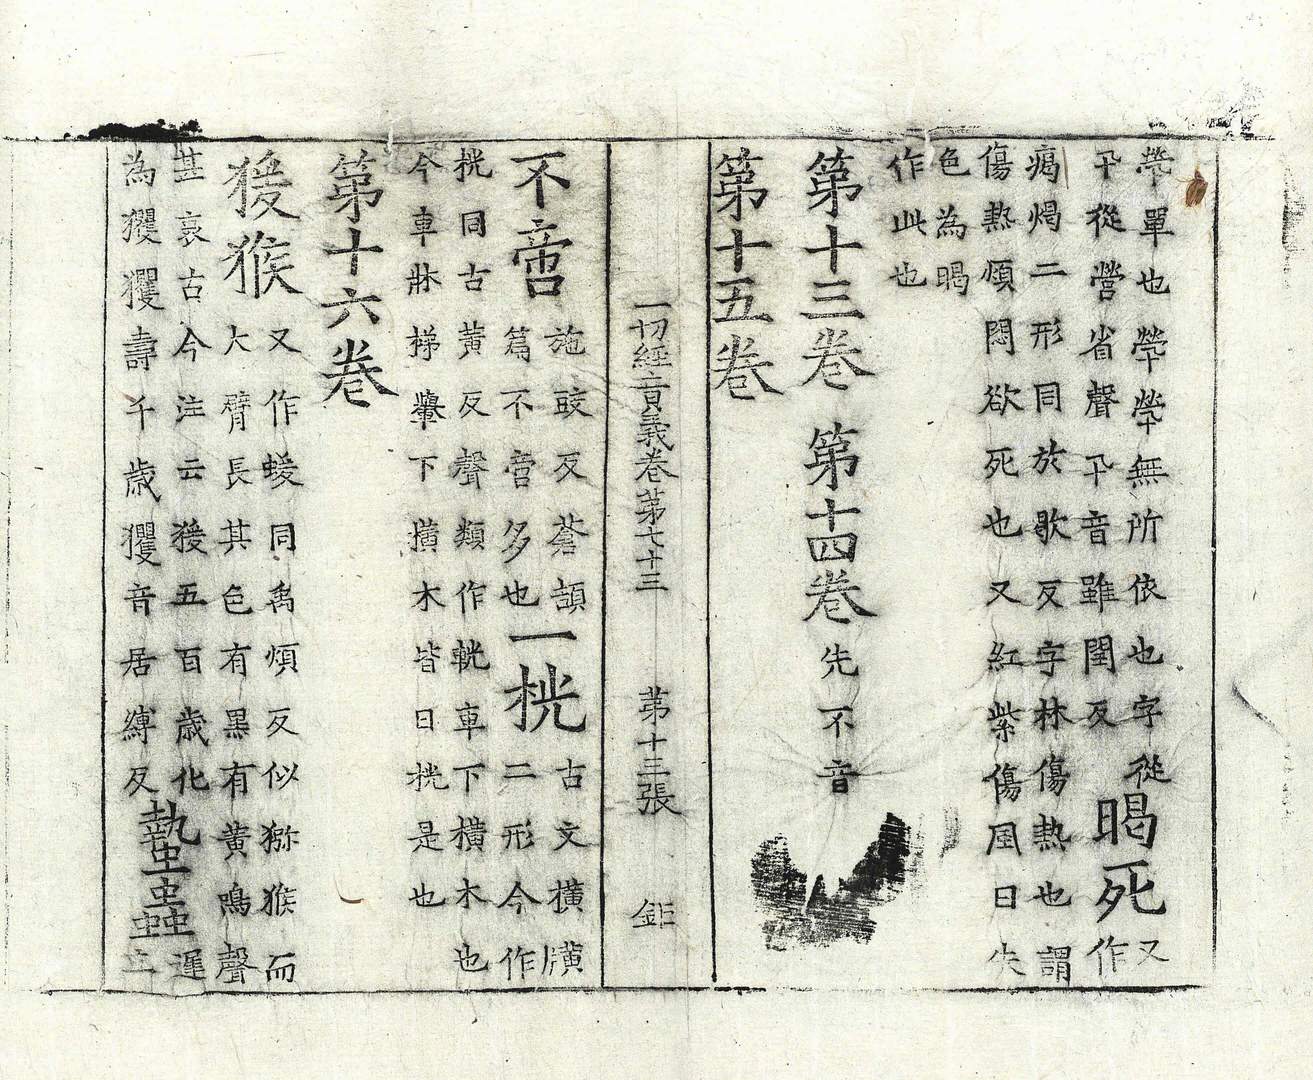 煢單也煢煢無所依也字從
卂從營省聲卂音雖閏反
暍死
又
作
瘍煬二形同於歇反字林傷熱也謂
傷熱煩悶欲死也又紅紫傷風日失
色為暍
作此也
第十三卷 第十四卷 先不音
第十五卷
一切經音義卷第七十三 第十三張 鉅
不啻
施豉反蒼頡
篇不啻多也
一桄
古文橫㸠
二形今作
桄同古黃反聲類作軦車下橫木也
今車牀梯轝下橫木皆曰桄是也
第十六卷
猨猴
又作蝯同禹煩反似獼猴而
大臂長其色有黑有黃鳴聲
甚哀古今注云猨五百歲化
為玃玃壽千歲玃音居縛反
蟄蟲
遲
立